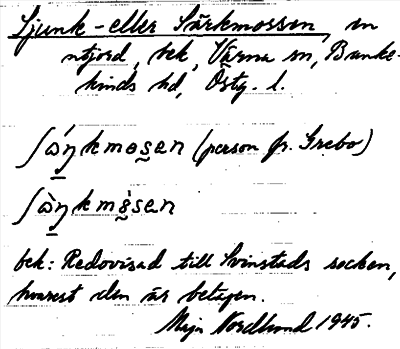 Sjunk- eller Särkmossen, en
utjord, bek, Värna sn, Banke-
kinds hd, Östg. l.
(person fr. Grebo)
bek: Redovisad till Svinstads socken,
hvarest den är belägen.
Maja Nordlund 1945.